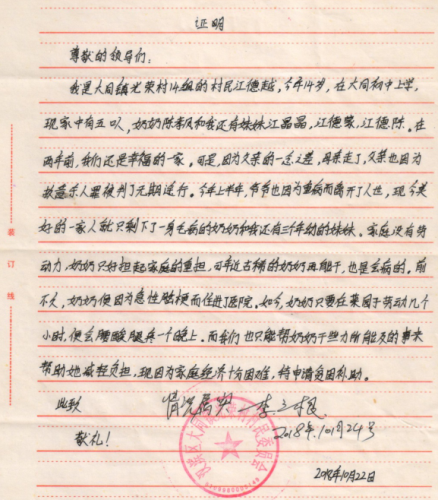 证明
尊敬的领导们:
我是大同镇光荣村14组的村民江德越,今年14岁,在大同初中上学,
现家中有五口人,奶奶陈季凤和我还有妹妹江晶晶,江德荣,江德陈。在
两年前,我们还是幸福的一家。可是,因为父亲的一念之差,母亲走了,父亲也因为
故意杀人罪被判了无期徒行。今年上半年,爷爷也因为重病而离开了人世,现今美
好的一家人就只剩下了一身毛病的奶奶和我还有三个年幼的妹妹。家庭没有劳
动力,奶奶只好担起家庭的重担,可年近古稀的奶奶再能干,也是会病的。前
不久,奶奶便因为急性脑梗而住进了医院。如今,奶奶只要在菜园子劳动几个
小时,便会腰酸腿疼一个晚上。而我们也只能帮奶奶干些力所能及的事来
帮助她减轻负担,现因为家庭经济十分困难,特申请贫困补助。
此致
情况属实
敬礼!
2018年10月24号
2018年10月22日
装
订
线